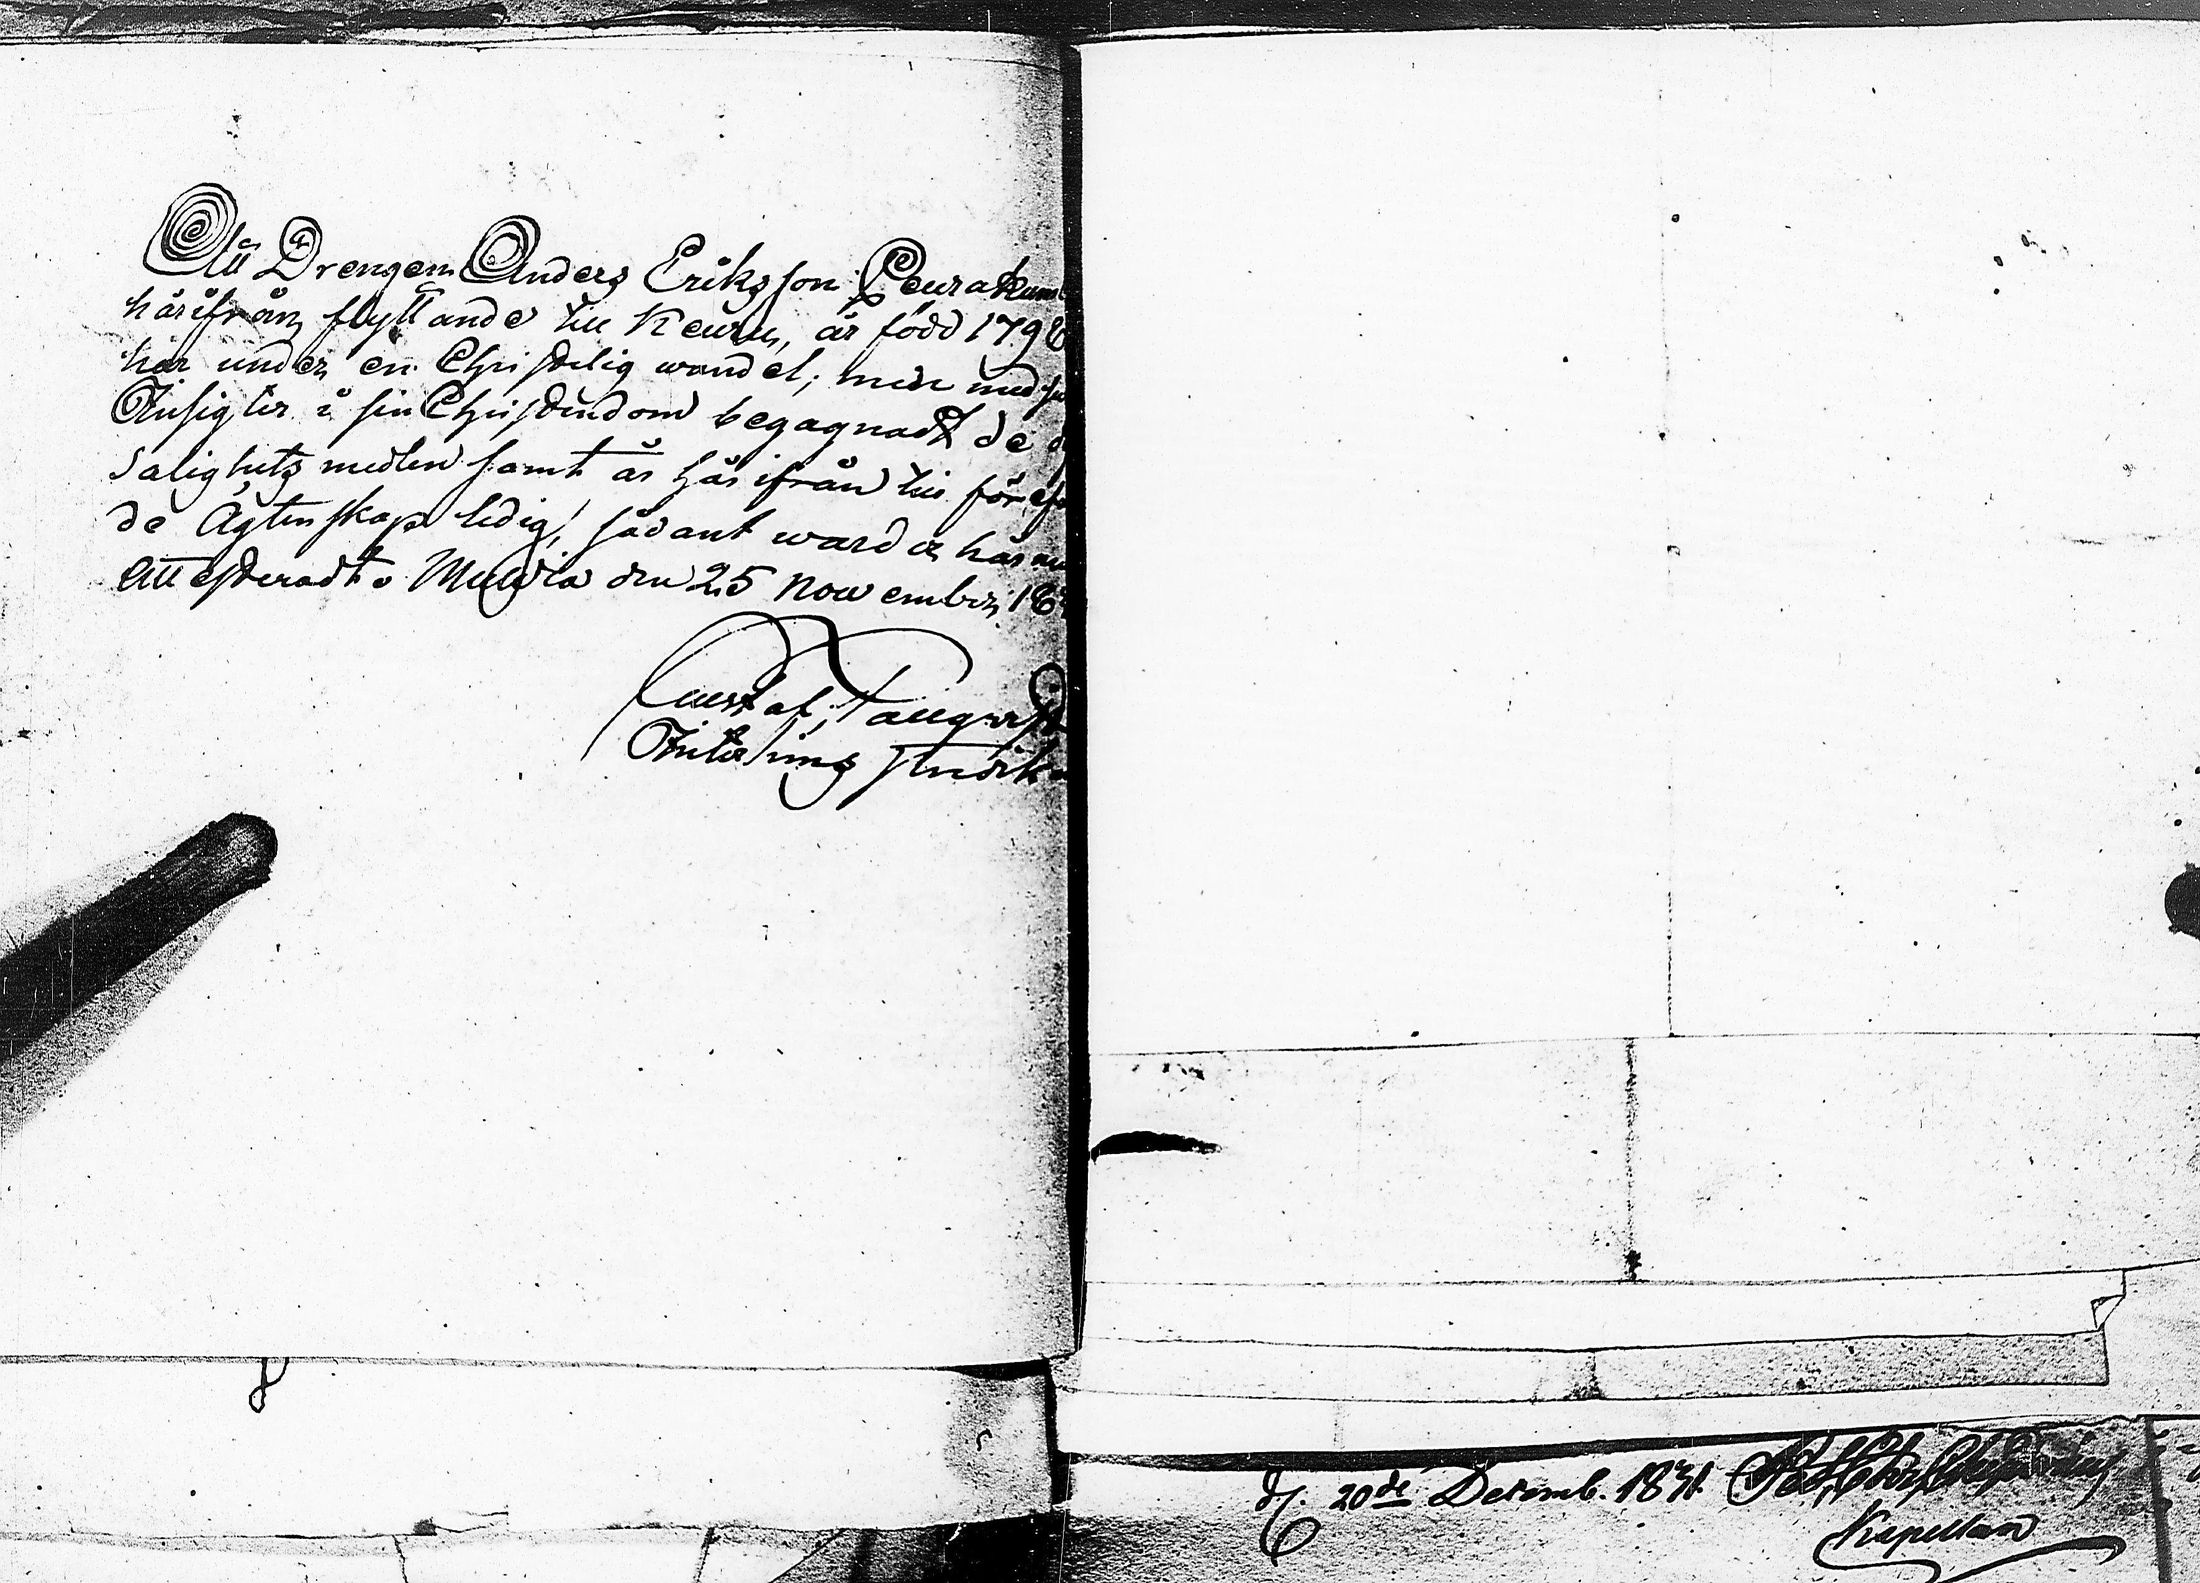 Att Drengen Anders Eriksson Peurakum
härifrån flyttande till Keuru, är född 179
här under en Christelig wandel; med
Insigter i sin Christendom begagnadt de
Salighetz medlen samt är här ifrån till
de Ägtenskap ledig, sådant warder här
Attesteradt. Multia den 25 November 18
Gustaf
d. 20de Decemb. 1831.
Kapellan